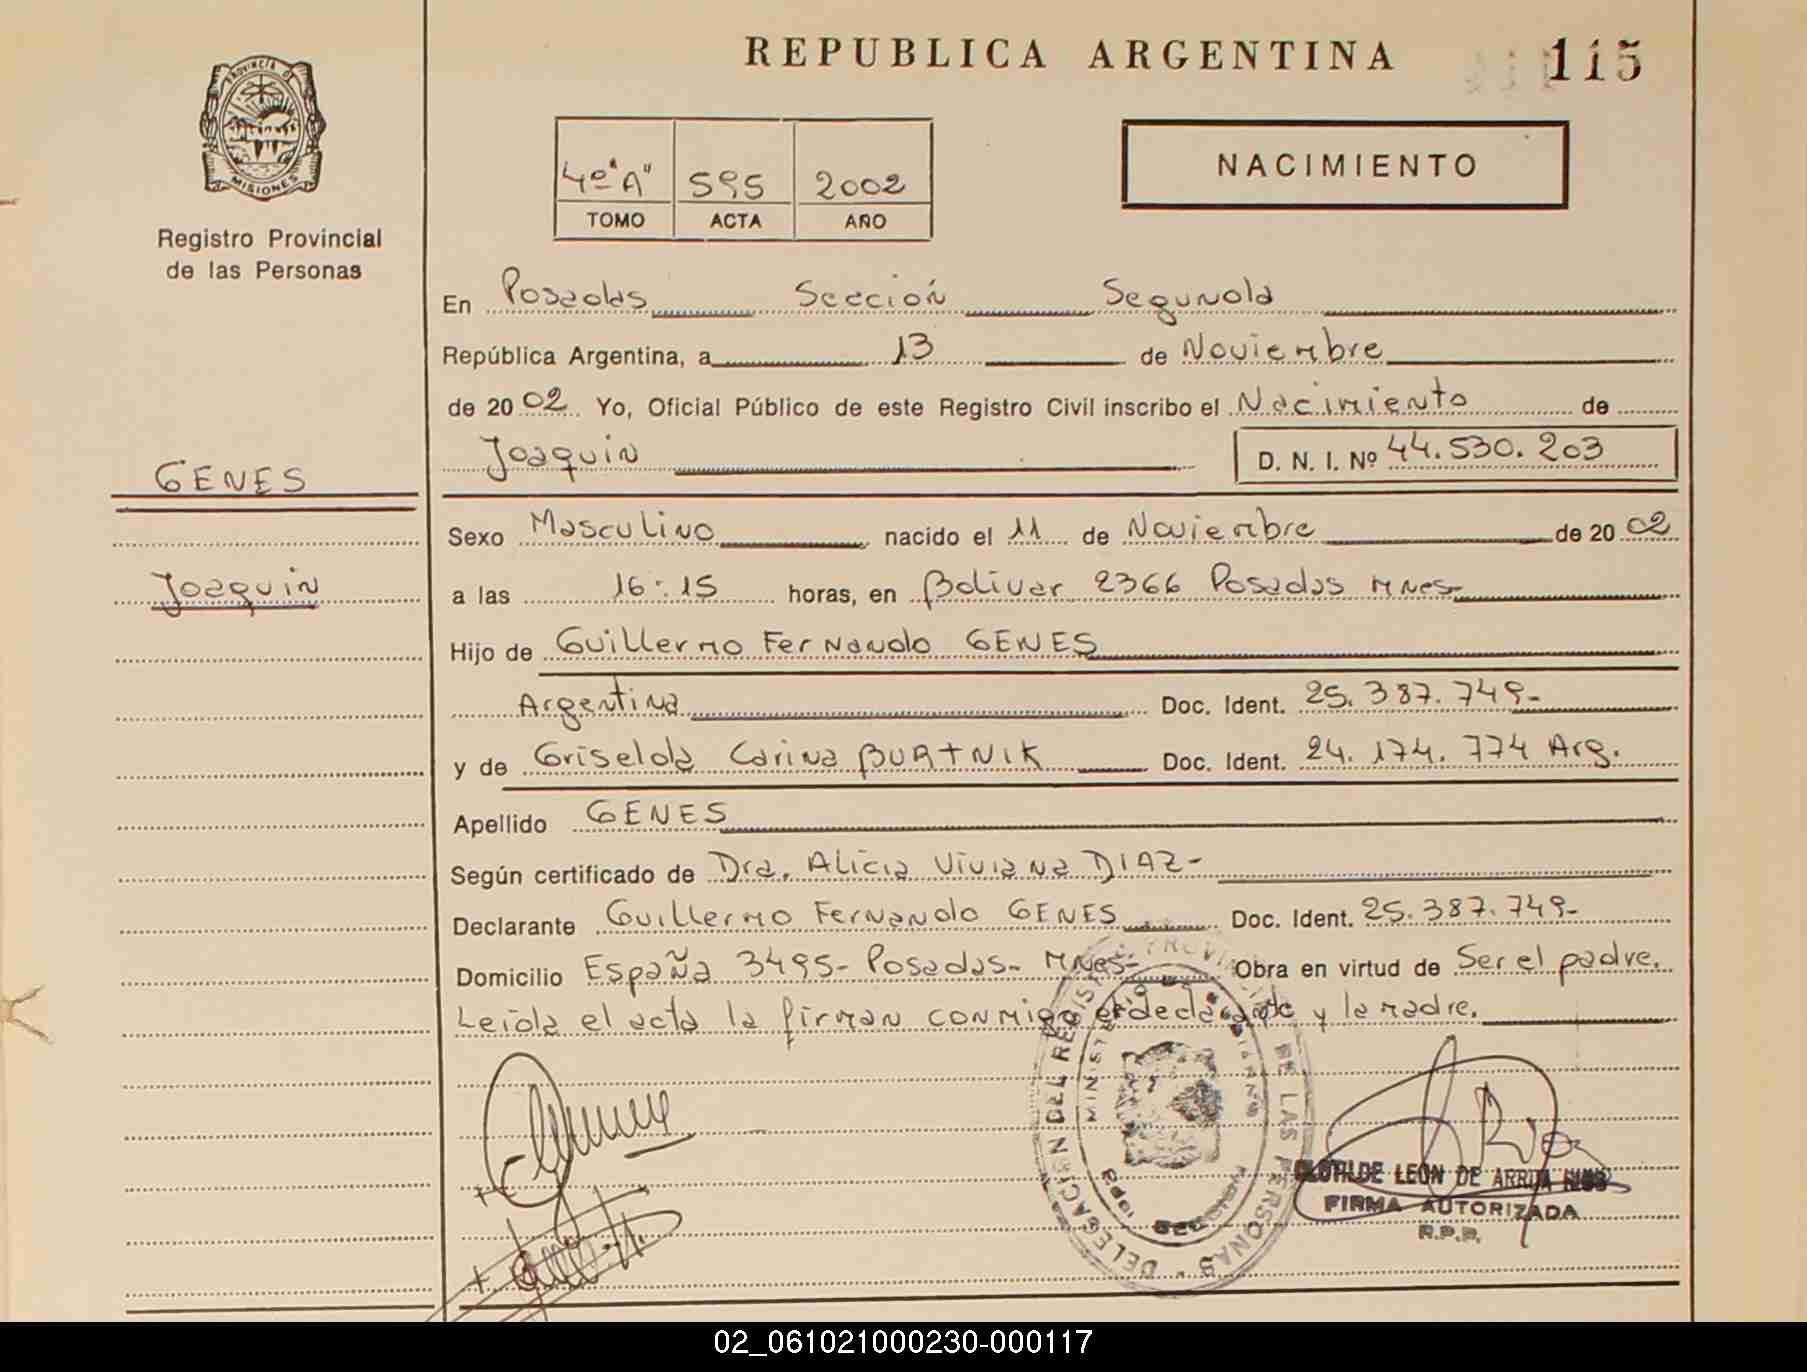 REPUBLICA ARGENTINA 115
PROVINCIA DE
MISIONES
Registro Provincial
de las Personas
4º "A" 595 2002
TOMO ACTA AÑO
NACIMIENTO
En Posadas Sección Segunda
República Argentina, a 13 de Noviembre
de 20 02 Yo, Oficial Público de este Registro Civil inscribo el Nacimiento de
Joaquin D. N. I. Nº 44.530.203
GENES
Joaquin
Sexo Masculino nacido el 11 de Noviembre de 20 02
a las 16:15 horas, en Bolívar 2366 Posadas Mnes-
Hijo de Guillermo Fernando GENES
Argentina Doc. Ident. 25.387.749-
y de Griselda Carina BURTNIK Doc. Ident. 24.174.774 Arg.
Apellido GENES
Según certificado de Dra. Alicia Viviana DIAZ-
Declarante Guillermo Fernando GENES Doc. Ident. 25.387.749-
Domicilio España 3495- Posadas- Mnes- Obra en virtud de Ser el padre.
Leida el acta la firman conmigo el declarante y la madre.
DELEGACION DEL REGISTRO PROVINCIAL DE LAS PERSONAS
CLOTILDE LEON DE ARRUA RIOS
FIRMA AUTORIZADA
R.P.P.
02_061021000230-000117